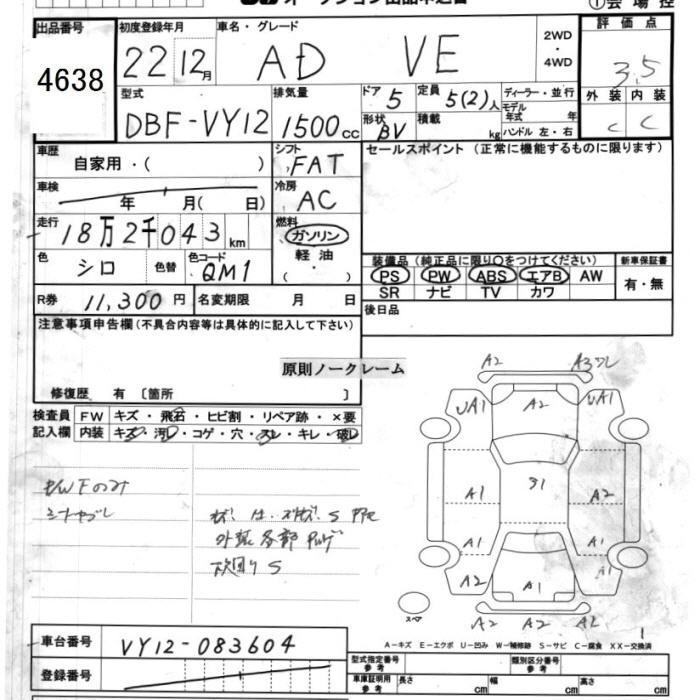 出品番号 初度登録年月 車名・グレード 2WD ・ 4WD 評価点
4638 22 12月 AD VE 3.5
型式 排気量 ドア 5 定員 5(2)人 ディーラー・並行 外装 内装
DBF-VY12 1500cc 形状 BV 積載 kg モデル年式 年 ハンドル 左・右 C C
車歴 自家用・( ) シフト FAT セールスポイント (正常に機能するものに限ります)
車検 年 月( 日) 冷房 AC
走行 18万2千043km 燃料 ガソリン 軽油・( )
色 シロ 色替 色コード QM1
装備品 (純正品に限り○をつけてください) 新車保証書
PS PW ABS エアB AW 有・無
SR ナビ TV カワ
R券 11,300円 名変期限 月 日 後日品
注意事項申告欄(不具合内容等は具体的に記入して下さい)
原則ノークレーム
修復歴 有 〔箇所 〕
検査員 FW キズ・飛石・ヒビ割・リペア跡・×要
記入欄 内装 キズ・汚レ・コゲ・穴・スレ・キレ・破レ
A2
UA1 A2 UA1
A1 A2
A1 A1
A2 A1
スペア A2 A2 A2
A-キズ E-エクボ U-凹み W-補修跡 S-サビ C-腐食 XX-交換済
車台番号 VY12-083604
登録番号
型式指定番号 参考 類別区分番号 参考
車庫証明用 参考 長さ cm 幅 cm 高さ cm